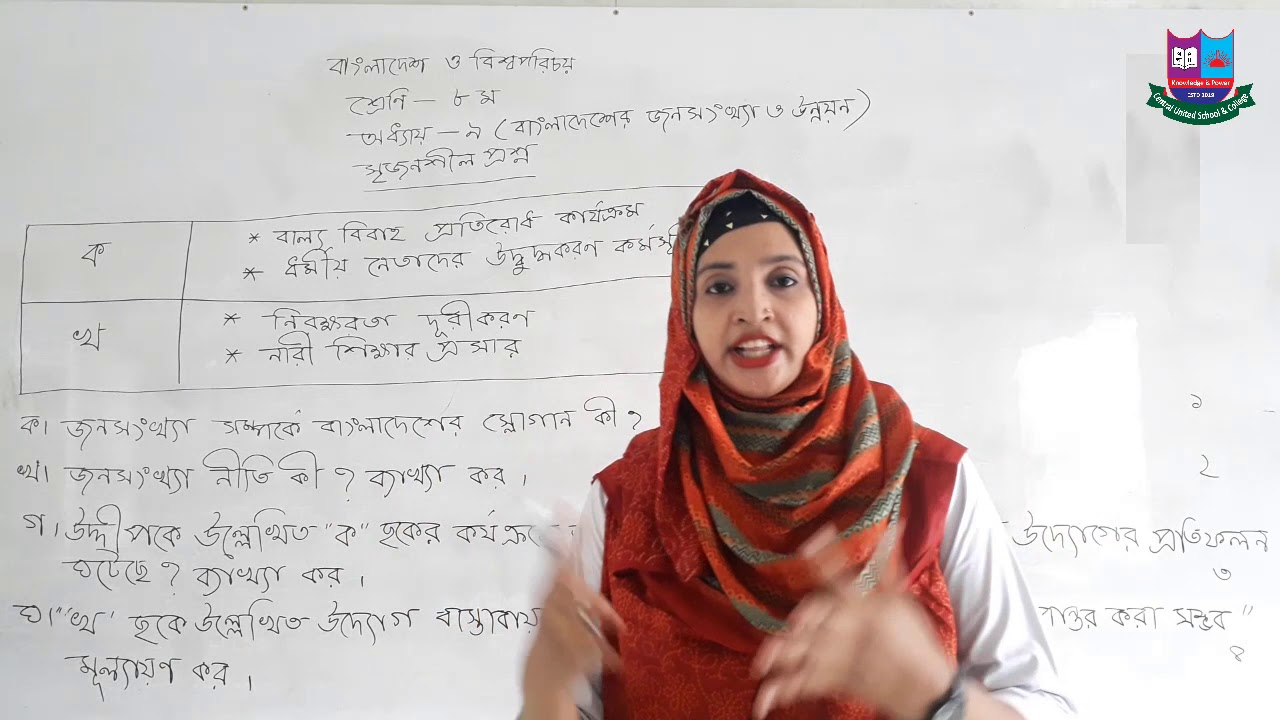 বাংলাদেশ ও বিশ্বপরিচয়
শ্রেণি - ৮ম
অধ্যায় - ৯ (বাংলাদেশের জনসংখ্যা ও উন্নয়ন)
সৃজনশীল প্রশ্ন
ক
* বাল্য বিবাহ প্রতিরোধ কার্যক্রম
* ধর্মীয় নেতাদের উদ্বুদ্ধকরণ
খ
* নিরক্ষরতা দূরীকরণ
* নারী শিক্ষার প্রসার
ক। জনসংখ্যা সম্পর্কে বাংলাদেশের স্লোগান কী? ১
খ। জনসংখ্যা নীতি কী? ব্যাখ্যা কর। ২
গ। উদ্দীপকে উল্লেখিত "ক" ছকের উদ্যোগের প্রতিফলন
ঘটেছে? ব্যাখ্যা কর। ৩
ঘ। "খ" ছকে উল্লেখিত উদ্যোগ করা সম্ভব"
মূল্যায়ণ কর। ৪
Knowledge is Power
ESTD 2019
Central United School & College